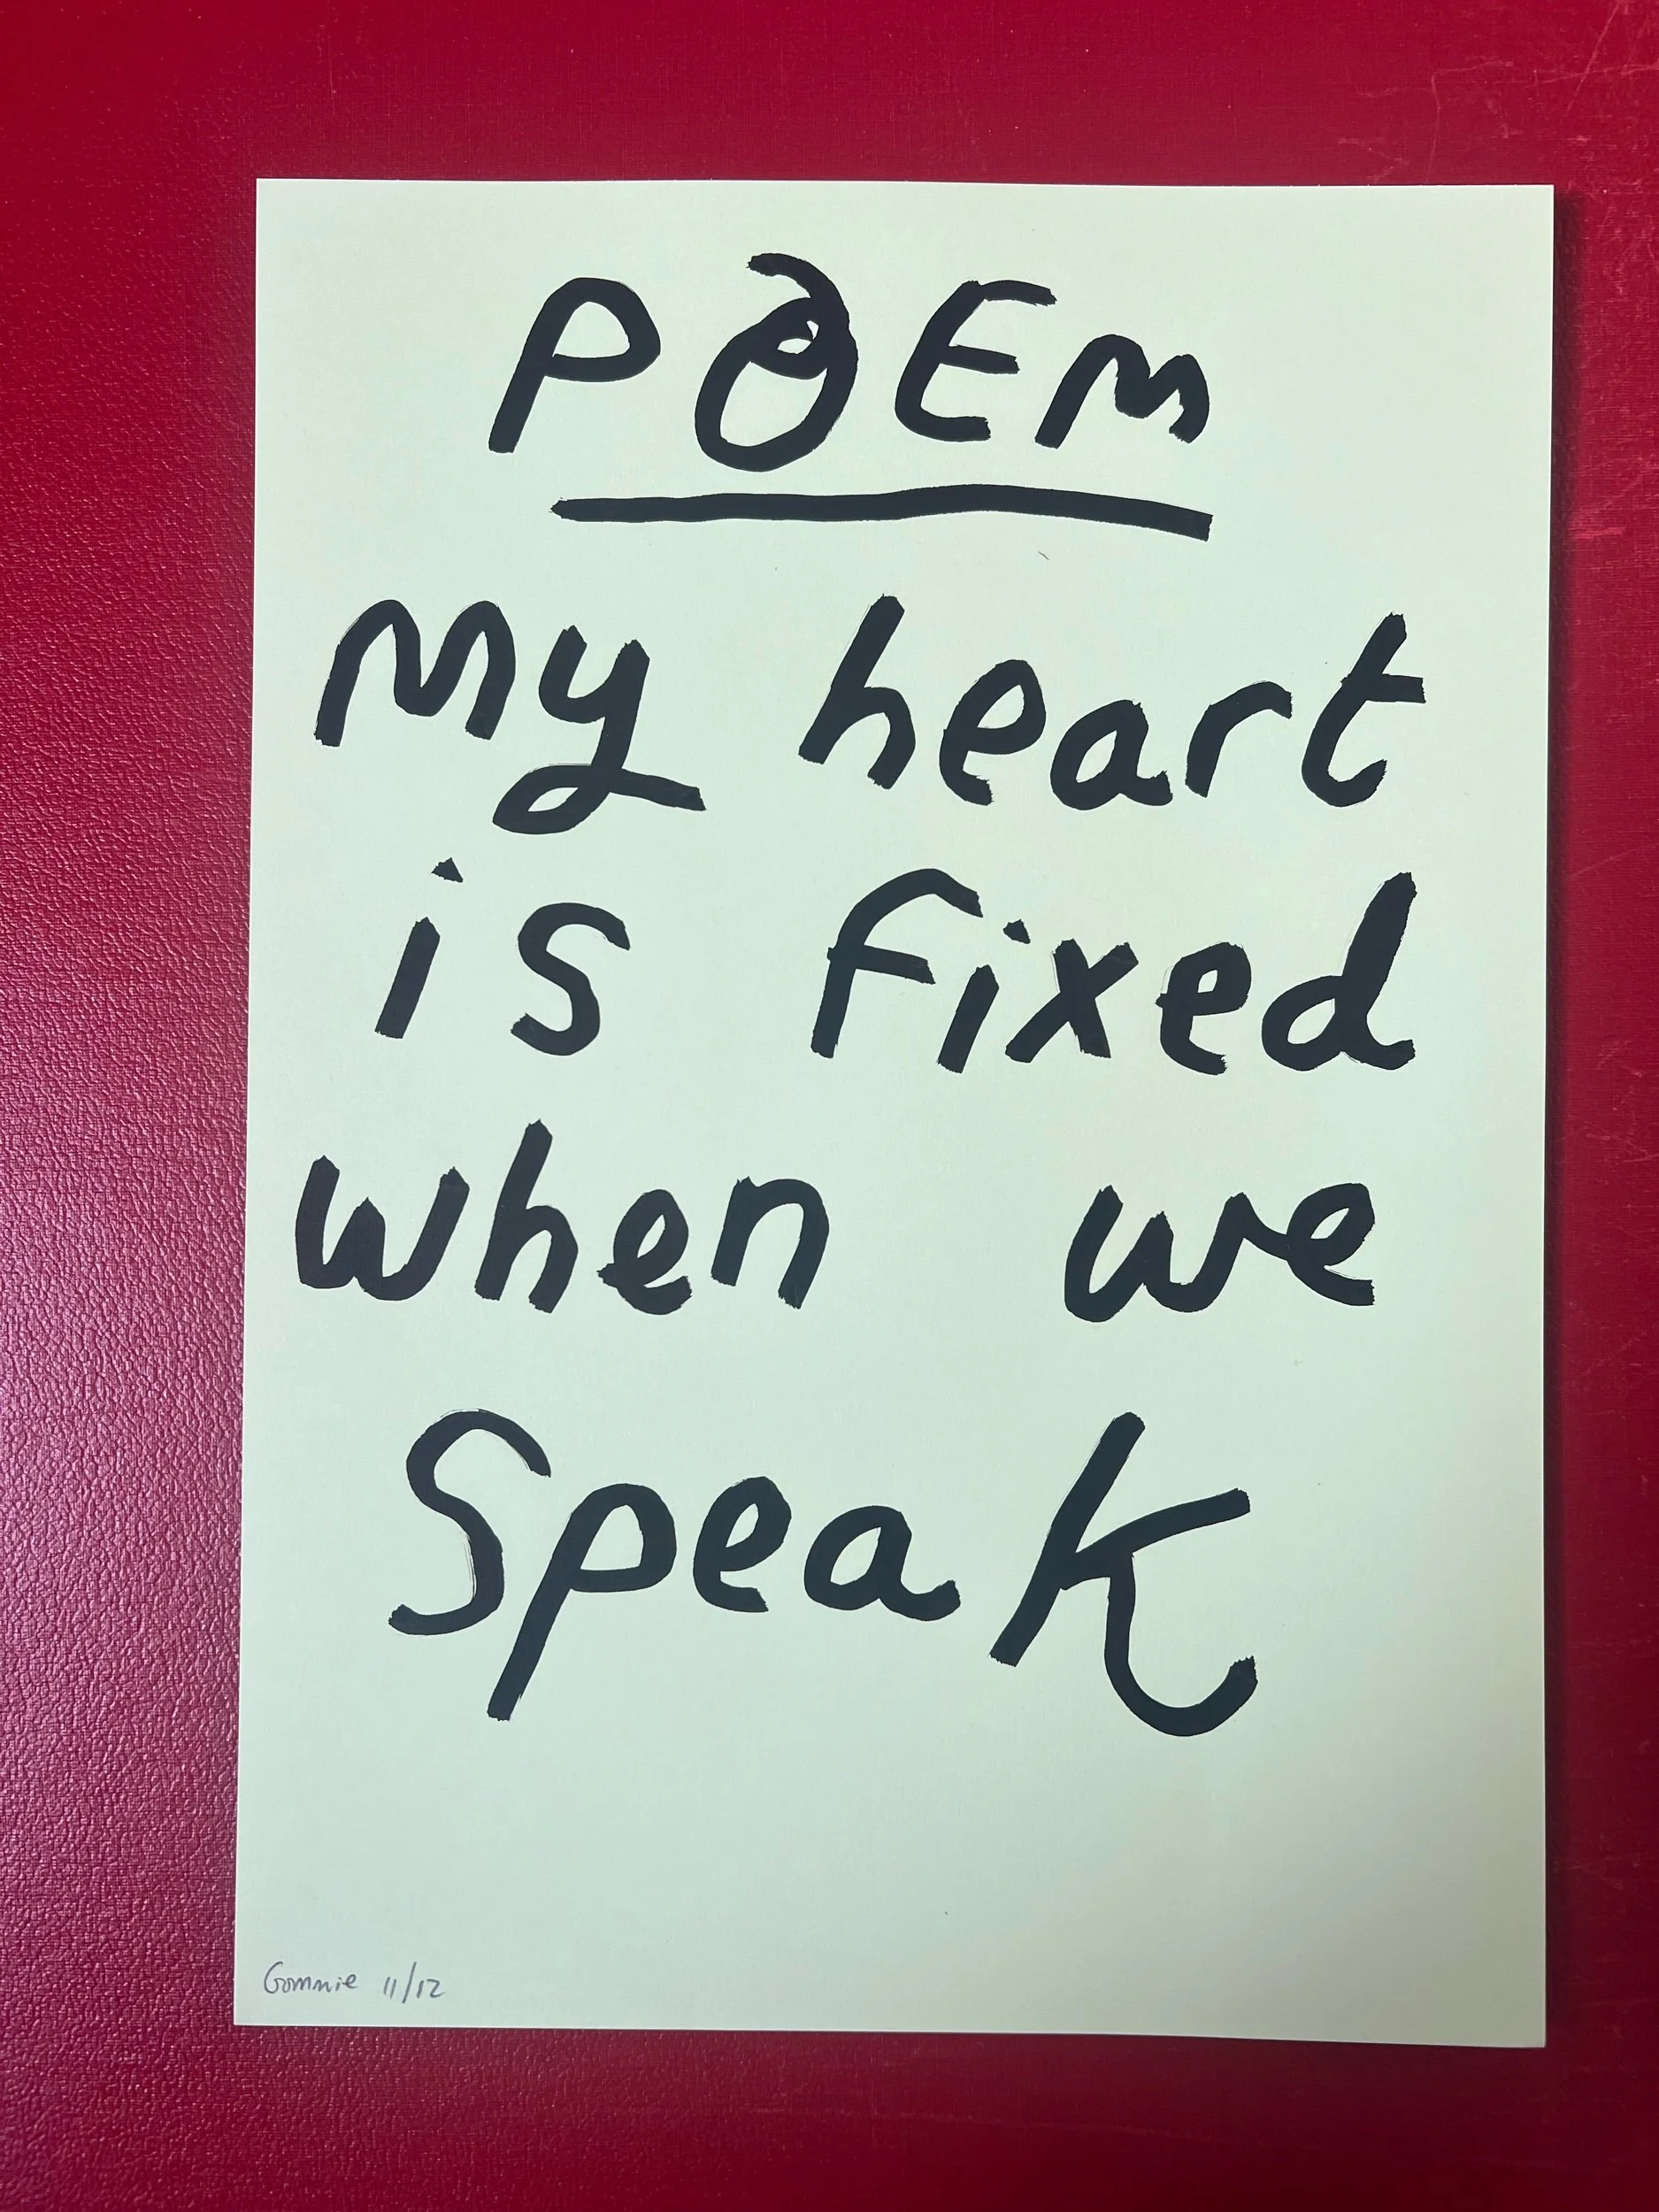 POEM
My heart
is fixed
when we
Speak
Gommie 11/12